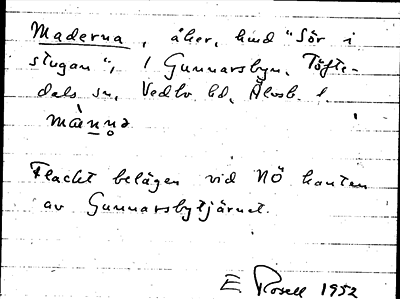 Maderna, åker, hmd "Sör i
stugan", i Gunnarsbyn, Töfte-
dals sn, Vedbo hd, Älvsb. l.
mànṇə
Flackt belägen vid NÖ kanten
av Gunnarsbytjärnet.
E Rosell 1952